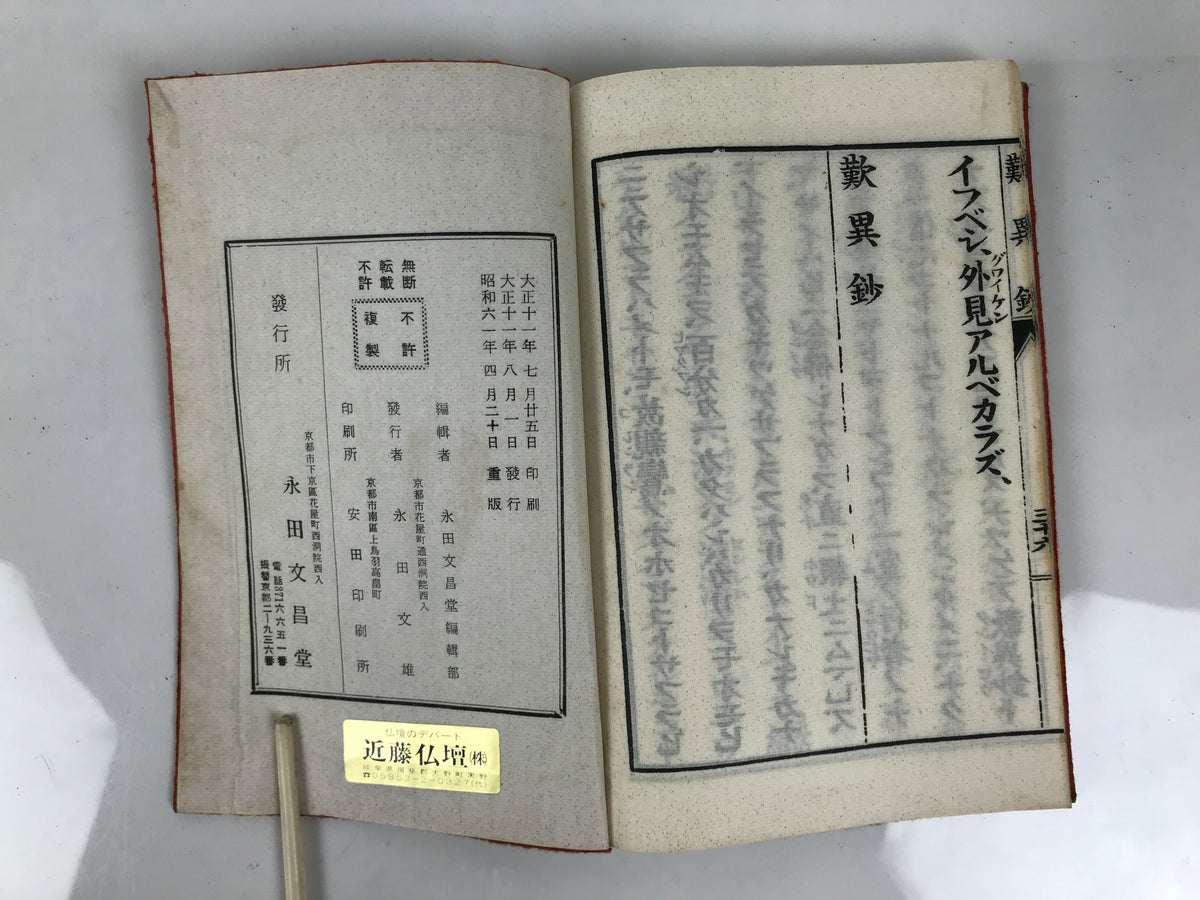 歎異鈔
三十六
イフベシ、外見アルベカラズ、
グワイケン
歎異鈔
大正十一年七月廿五日印刷
大正十一年八月一日發行
昭和六一年四月二十日重版
無断
転載
不許
不許
複製
編輯者 永田文昌堂編輯部
京都市花屋町通西洞院西入
發行者 永田文雄
京都市南區上鳥羽高畠町
印刷所 安田印刷所
發行所
京都市下京區花屋町西洞院西入
永田文昌堂
電話371六六五一番
振替京都二一九三六番
仏壇のデパート
近藤仏壇㈱
☎05853-2-0327(代)